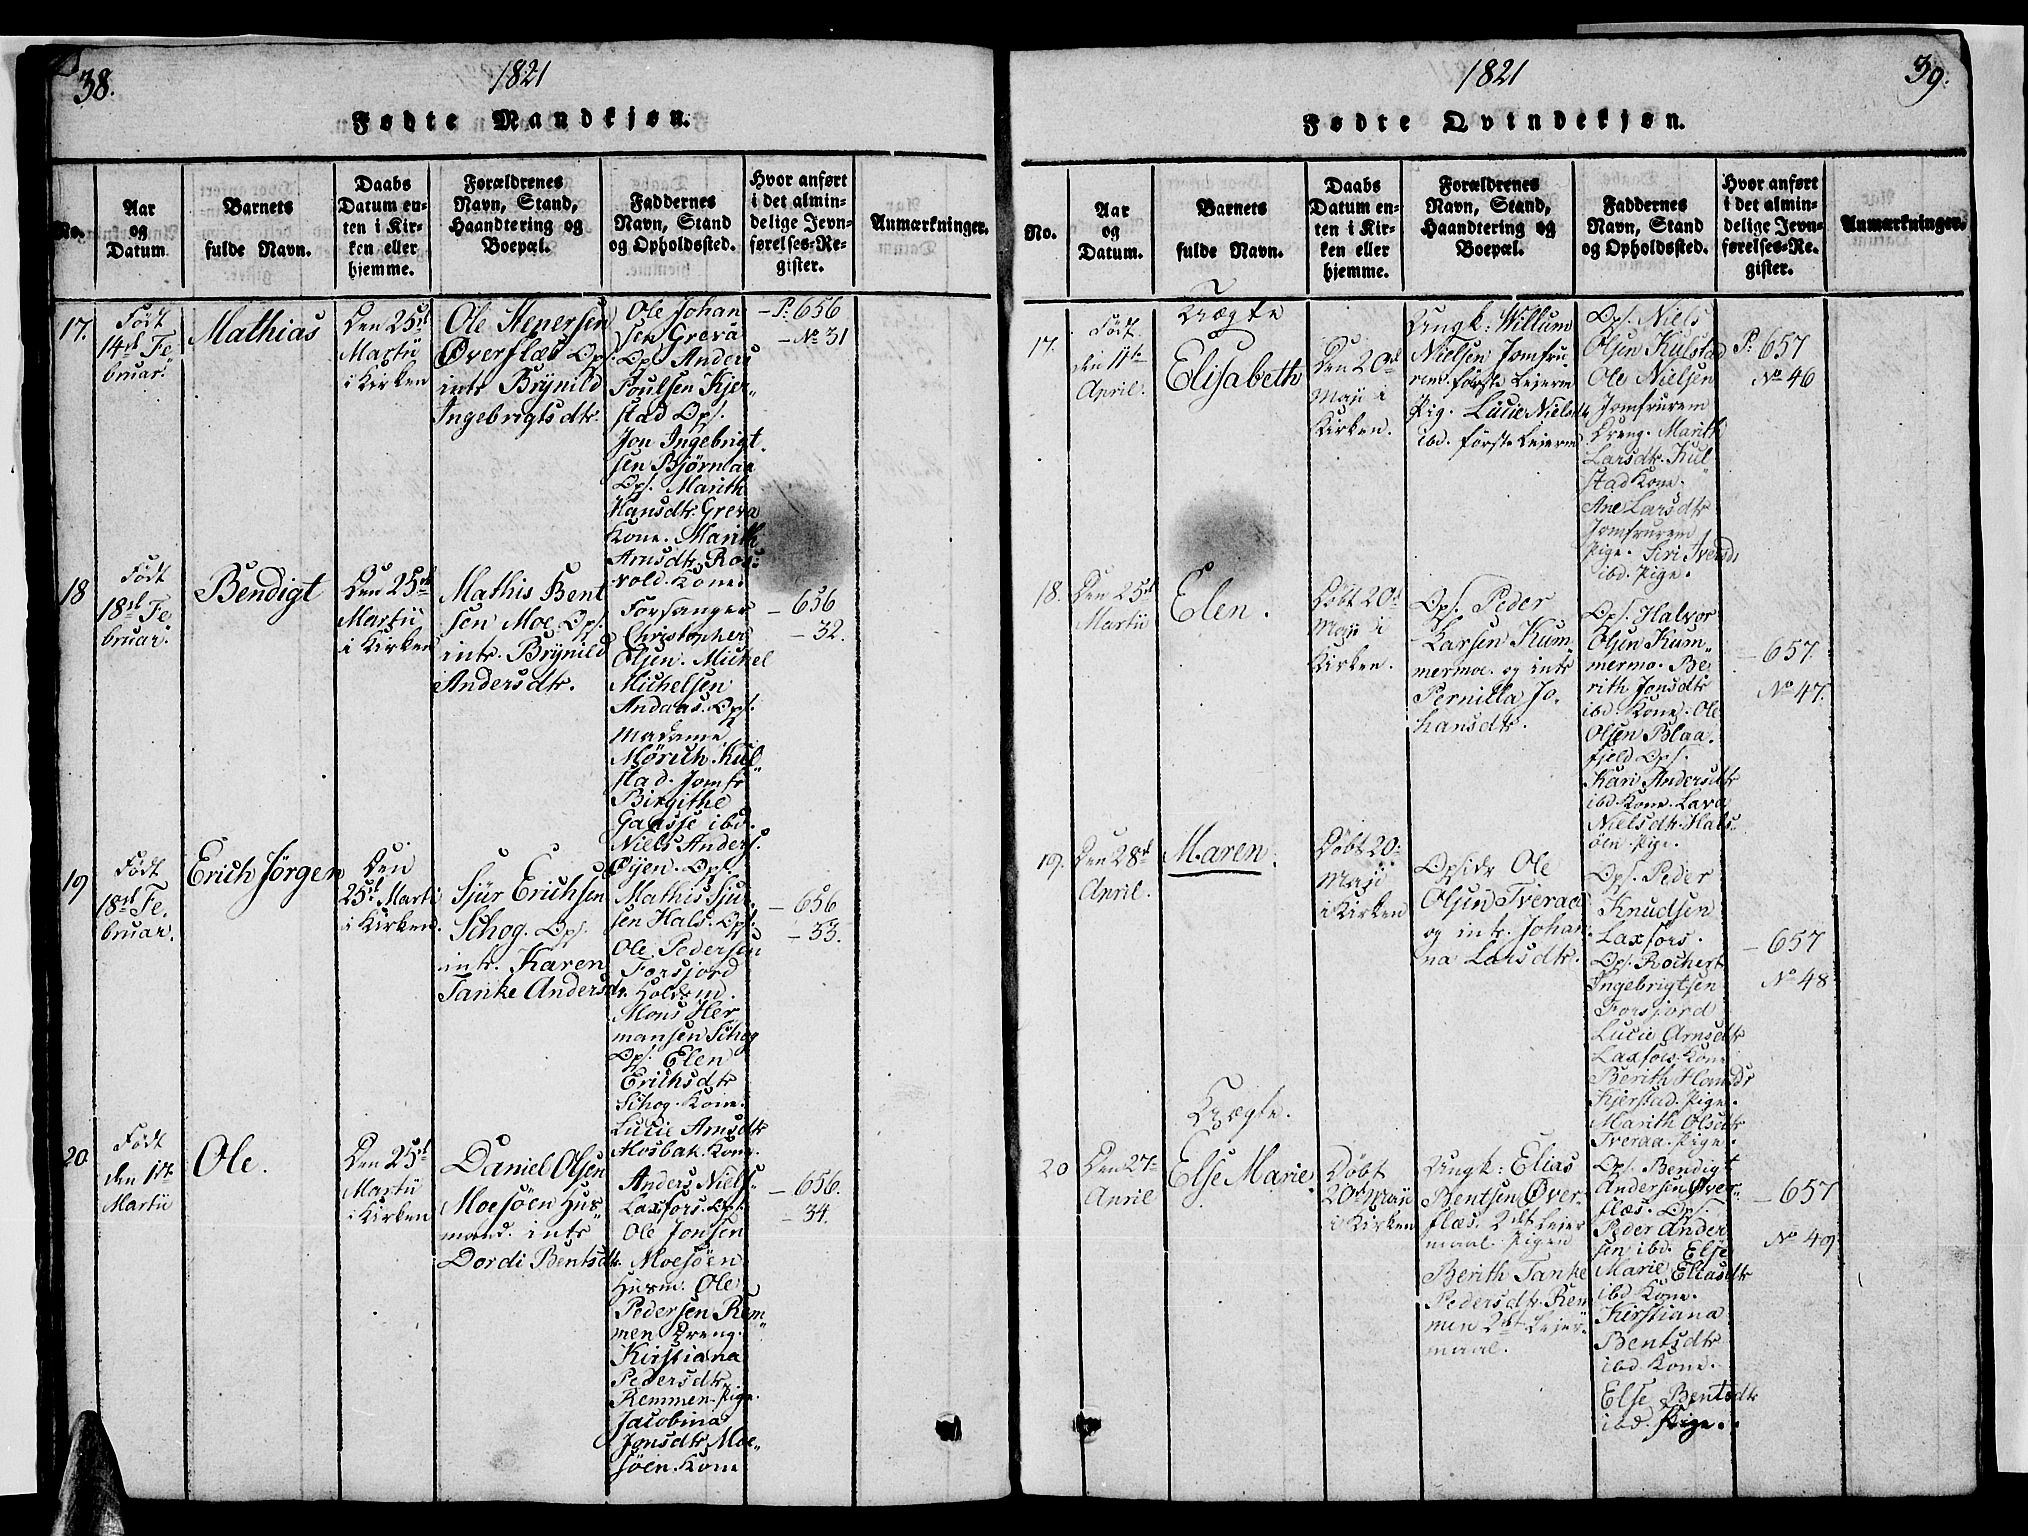 38.
1821
Fødte Mandkjøn.
No.
Aar
og
Datum
Barnets
fulde Navn.
Daabs
Datum en-
ten i Kir-
ken eller
hjemme.
Forældrenes
Navn, Stand,
Haandtering og
Boepæl.
Faddernes
Navn, Stand
og Opholdssted.
Hvor anført
i det almin-
delige Jevn-
førelses-Re-
gister.
Anmærkninger.
17.
Født
14de Fe
bruar.
Mathias
Den 25de
Martii
i Kirken
Ole Stenersen
Øverflæs Ops.
intr Brynild
Ingebrigtsdtr
Ole Johan
sen Greva
Ops. Anders
Poulsen Kjer-
stad Ops.
Jon Ingebrigt
sen Bjørnaa
Ops. Marith
Hansdtr Greva
Kone. Marith
Arnsdtr Ros
vold Kone
P. 656
No 31
18
Født
18de Fe
bruar.
Bendigt
Den 25de
Martii
i Kirken
Mathis Bent
sen Moe Ops.
intr. Brynild
Andersdtr.
Forsanger
Christopher
Olsen. Michel
Michelsen
Andaas. Ops.
Madame
Mørich. Kul
stad. Jomfr
Birgithe
Gaasse ibd.
Niels Anders.
Øyen. Ops.
– 656
– 32.
19
Født
18de Fe.
bruar.
Erich Jørgen
Den
25de Marti
i Kirken
Sjur Erichsen
Schog. Ops.
intr. Karen
Tanke Andersdtr.
Mathis Sjur
sen Hals. Ops.
Ole Pedersen
Forsjord
Holdsmd.
Mons Her
mansen Schog
Ops. Elen
Erichsdtr
Schog. Kone.
Lucie Arnsdtr
Mosbak. Kone.
– 656
– 33.
20
Født
den 1ste
Martii
Ole.
Den 25de
Martii
i Kirken
Daniel Olsen
Moesøen Hus
mand. intr
Dordi Bentsdtr.
Anders Niels.
Laxfors. Ops.
Ole Jonsen
Moesøen
Husm. Ole
Pedersen Rem
men Dreng.
Kirstiana
Pedersdtr
Remmen. Pige.
Jacobina
Jonsdtr Moe
søen. Kone
– 656.
– 34.
39.
1821
Fødte Qvindekjøn.
No.
Aar
og
Datum.
Barnets
fulde Navn.
Daabs
Datum en-
ten i Kir-
ken eller
hjemme.
Forældrenes
Navn, Stand,
Haandtering og
Boepæl.
Faddernes
Navn, Stand
og Opholdssted.
Hvor anført
i det almin-
delige Jevn-
førelses-Re-
gister.
Anmærkninger.
17.
Født
den 11te
April.
Uægte
Elisabeth
Den 20de
Maji i
Kirken.
Ungk: Willum
Nielsen Jomfru
rem. første Leierm
Pig. Lucie Nielsdtr
ibd. første Leierm
Ops. Niels
Olsen Kulstad
Ole Nielsen
Jomfrurem
Dreng. Marith
Larsdtr. Kul
stad Kone.
Ane Larsdtr
Jomfrurem
Pige. Siri Iversdtr
ibd. Pige.
P. 657
No 46
18.
Den 25de
Martii
Elen.
Døbt 20de
Maji i
Kirken.
Ops. Peder
Larsen Kum
mermoe. og intr
Pernilla Jo.
hansdtr.
Ops. Halvor
Olsen Kum
mermo. Be
rith Jonsdtr
ibd. Kone. Ole
Olsen Blaa
fjeld Ops.
Kari Andersdtr
ibd Kone. Lava
Nielsdtr. Hals
øen. Pige.
– 657.
No 47.
19.
Den 28de
April.
Maren.
Døbt 20
Maji
i Kirken
Opsidr Ole
Olsen Tveraa
og intr. Johan
na Larsdtr.
Ops. Peder
Knudsen
Laxfors.
Ops. Rochert
Ingebrigtsen
Forsjord
Lucie Arnsdtr
Laxfors Kone
Berith Hansdtr
Kjerstad. Pige.
Marith Olsdtr
Tveraa. Pige.
– 657
No 48
20
Den 27
April
Uægte.
Else Marie.
Døbt
20de Maji
i Kirken
Ungk: Elias
Bentsen Øver
flæs. 2det Leier
maal. Pigen
Berith Tanke
Pedersdtr. Rem
men 2det Leier
maal.
Ops. Bendigt
Andersen Øver
flæs. Ops.
Peder Ander
sen ibd. Else
Marie Eliasdtr
ibd Kone.
Kirstiana
Bentsdtr
ibd Kone.
Else Bentsdtr
ibd. Pige.
– 657
No 49